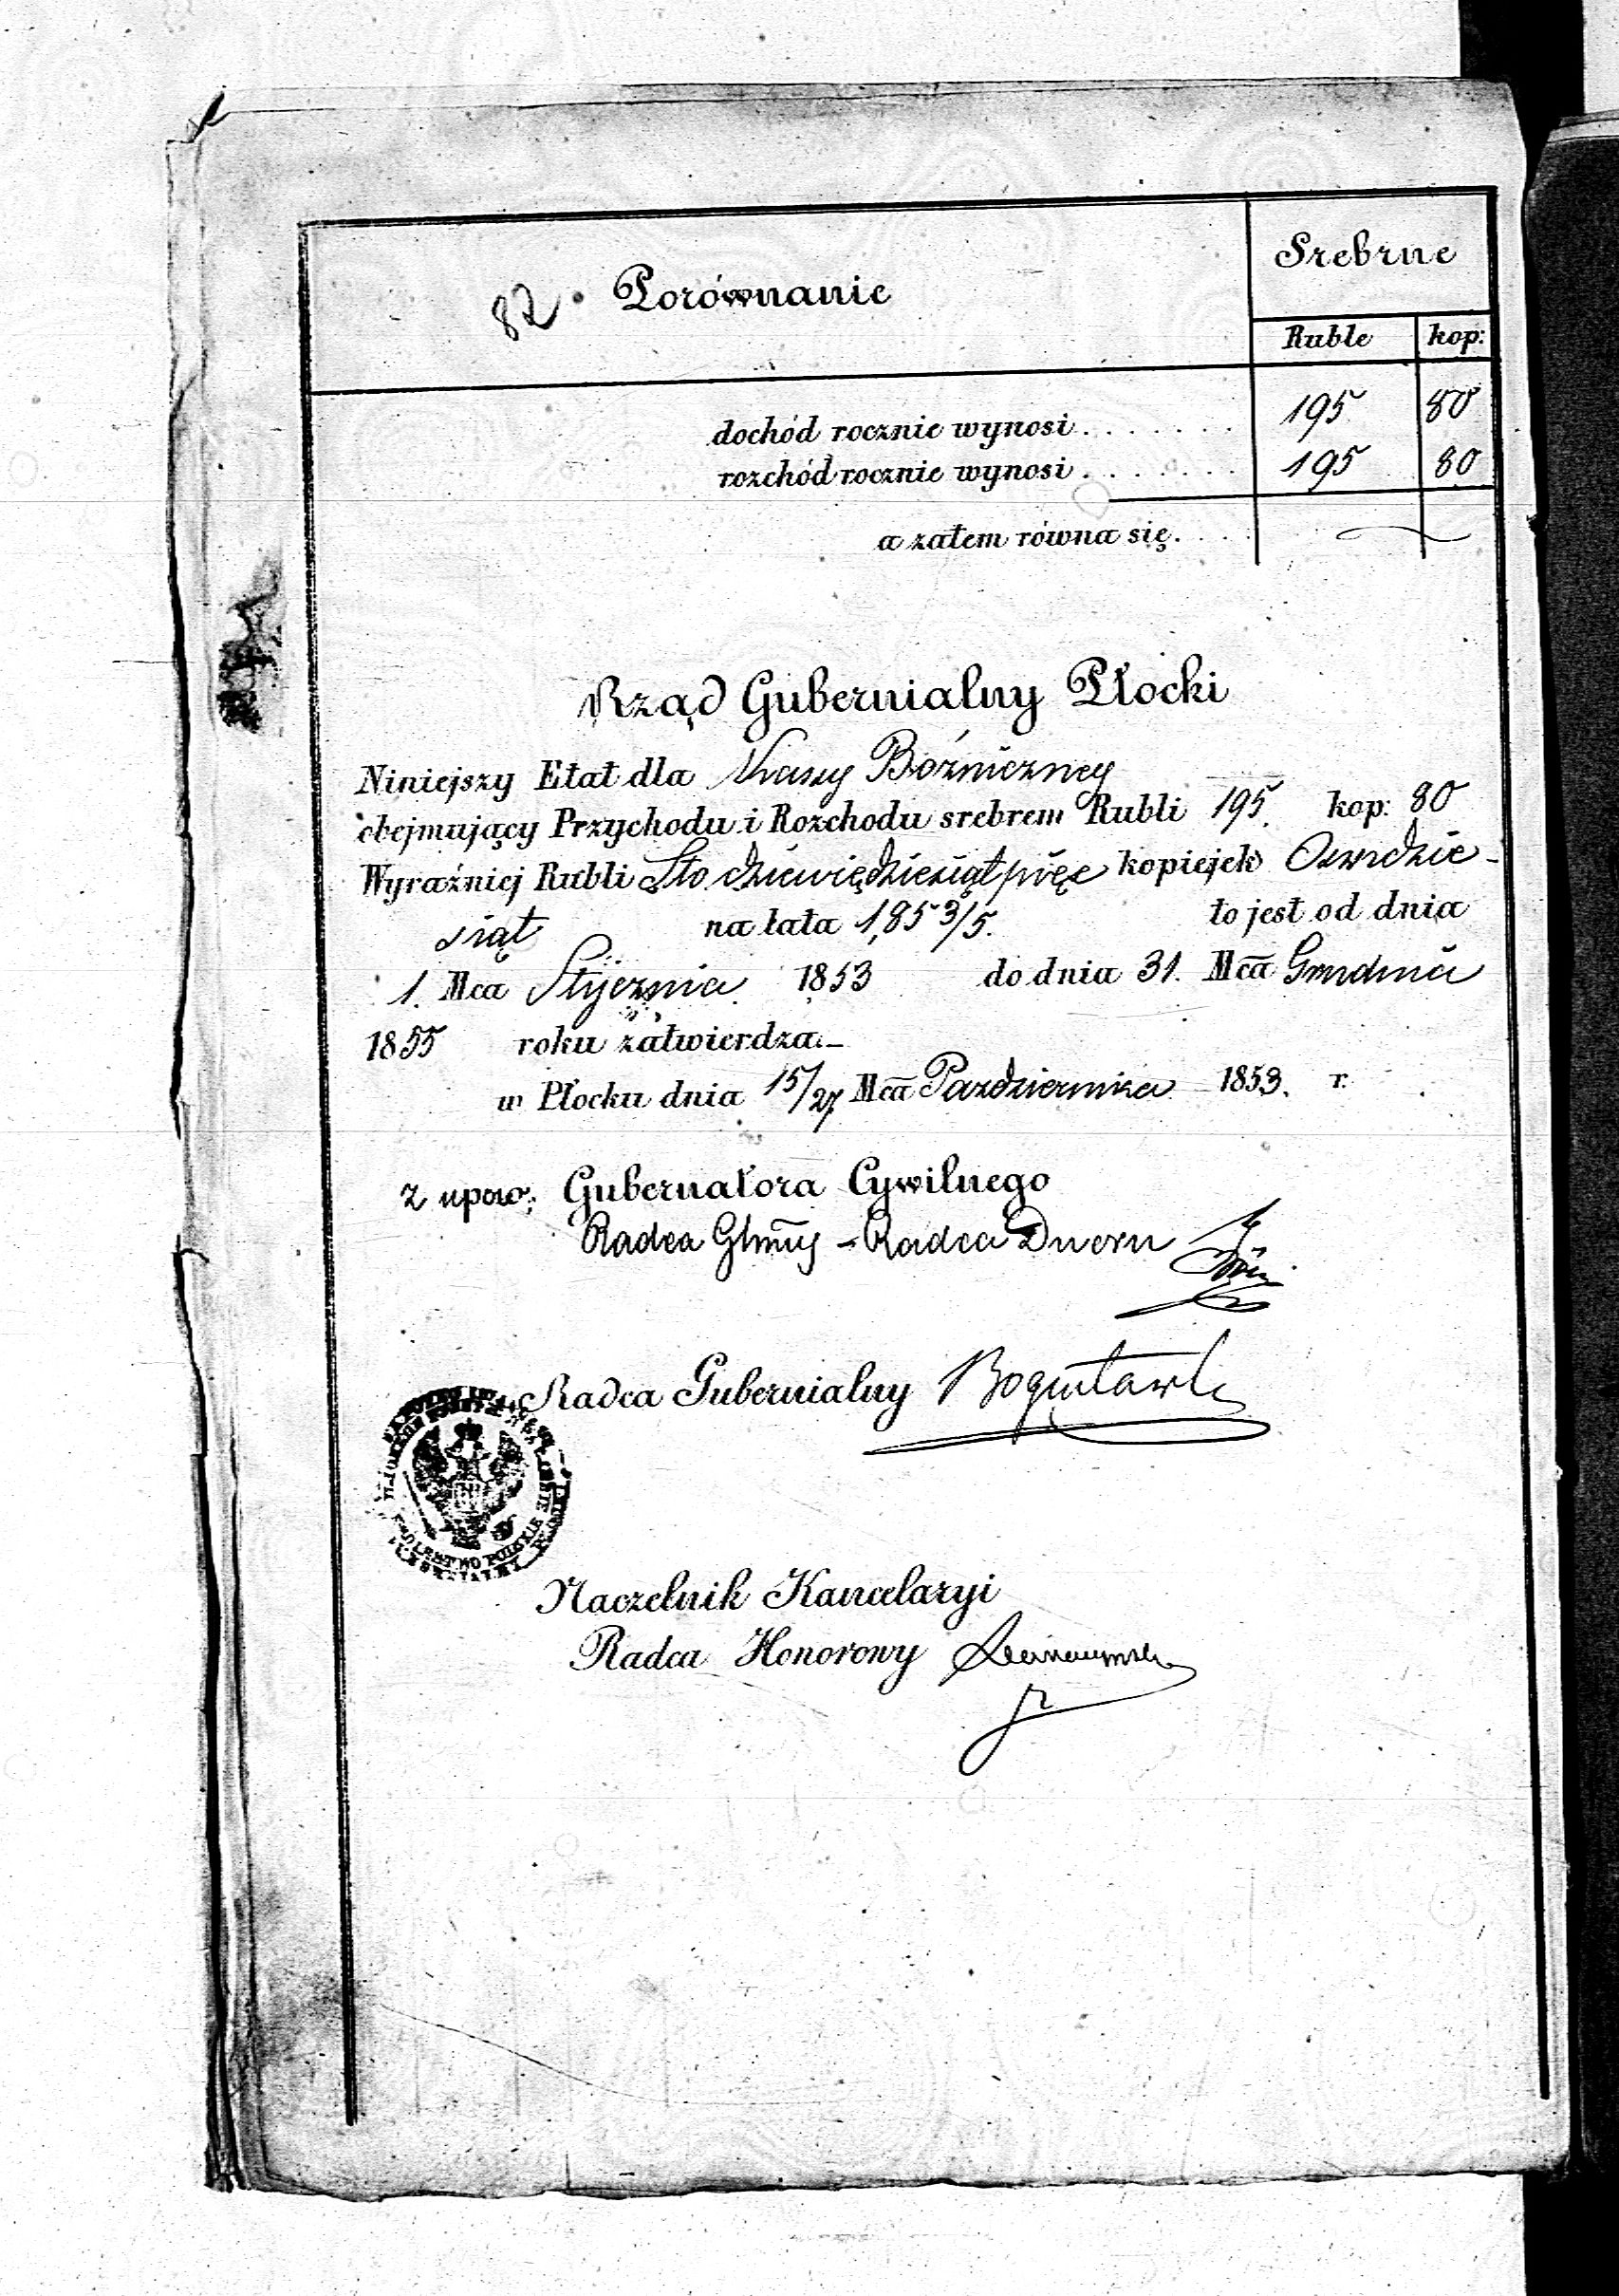 Srebrne
82. Porównanie
Ruble kop:
dochód rocznie wynosi . . . . . . . 195 80
rozchód rocznie wynosi . . . . . . . 195 80
a zatem równa się. . . .
Rząd Gubernialny Płocki
Niniejszy Etat dla Kassy Bożniczney
obejmujący Przychodu i Rozchodu srebrem Rubli 195. kop: 80
Wyraźniej Rubli Sto dziewiędziesiąt pięc kopiejek Osmdzie-
siąt na lata 1853/5. to jest od dnia
1. Mca Stycznia 1853 do dnia 31. Mca Grudnia
1855 roku zatwierdza.-
w Płocku dnia 15/27 Mca Pazdziernika 1853. r.
z upow: Gubernatora Cywilnego
Radca Głny - Radca Dworu
Radca Gubernialny Bogusławski
KRÓLESTWO POLSKIE
Naczelnik Kancelaryi
Radca Honorowy